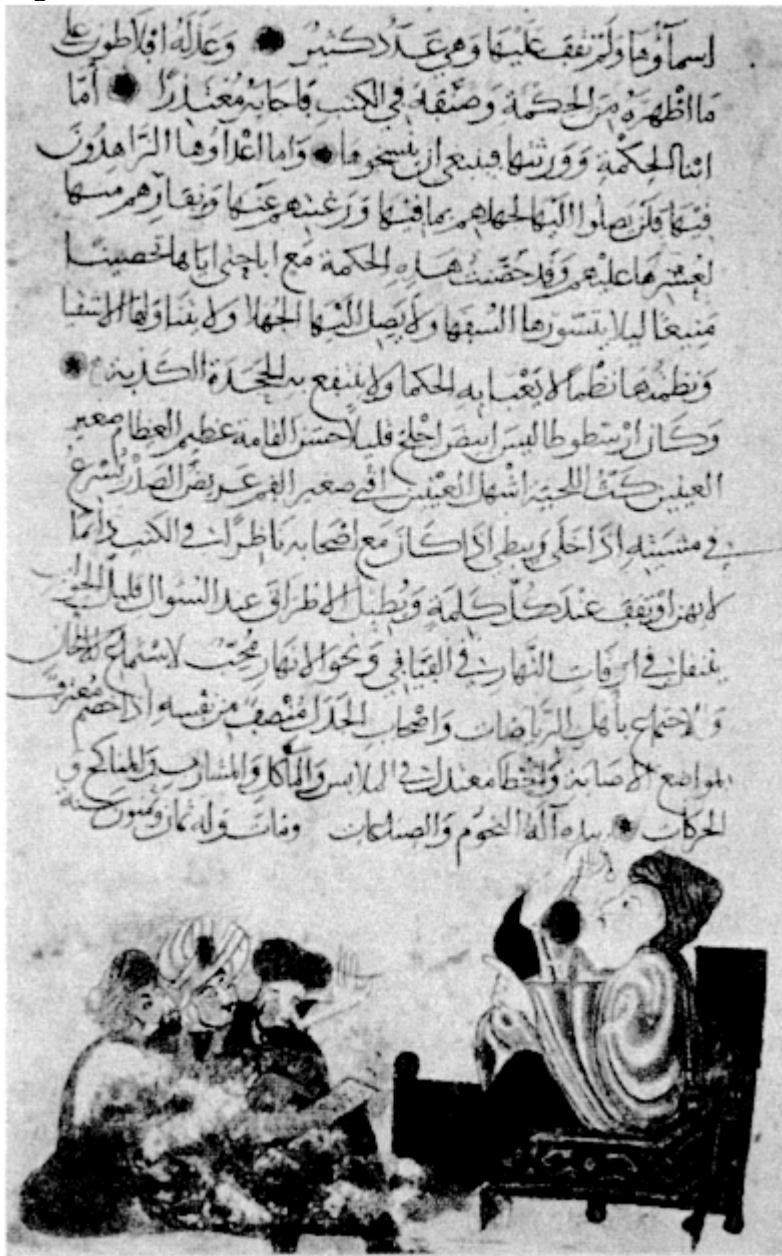 اسماؤها ولم نقف عليها وهي عدد كثير وعذله افلاطون على
ما اظهره من الحكمة وصنفه في الكتب فاجابه معتذرا أما
ابنا الحكمة وورثتها فينبغي ان ينسخوها واما اعداوها الزاهدون
فيها فلن يصلوا اليها لجهلهم بما فيها ورغبتهم عنها ونفارهم منها
لعسرها عليهم وقد حصنت هذه الحكمة مع اباحتي اياها تحصينا
منيعا ليلا يتسورها السفها ولا يصل اليها الجهلا ولا يتناولها الاشقيا
ونظمتها نظما لا يعبا به الحكما ولا ينتفع به الجحدة الكذبة
وكان ارسطوطاليس ابيض اجلح قليلا حسن القامة عظيم العظام صغير
العينين كث اللحية اشهل العينين اقنى صغير الفم عريض الصدر يسرع
في مشيته اذا خلى ويبطي اذا كان مع اصحابه ناظرا في الكتب دايما
لا يهذا ويقف عند كل كلمة ويطيل الاطراق عند السؤال قليل الجواب
ينتقل في اوقات النهار في الفيافي ونحو الانهار محب لاستماع الالحان
والاجتماع باهل الرياضات واصحاب الجدل منصف من نفسه اذا خصم معترف
بمواضع الاصابة والخطا معتدل في الملابس والمآكل والمشارب والمناكح و
الحركات بيده آلة النجوم والصناعات ومات وله ثمان وستون سنة